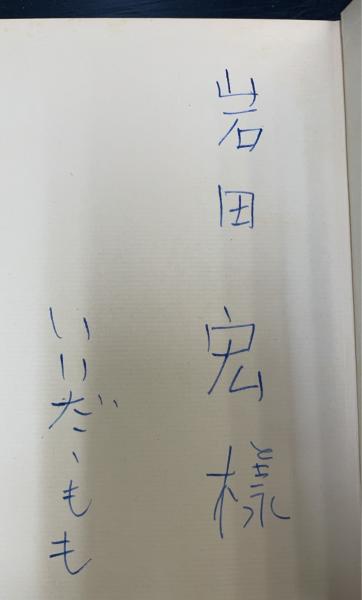 岩田宏様
いいだ・もも